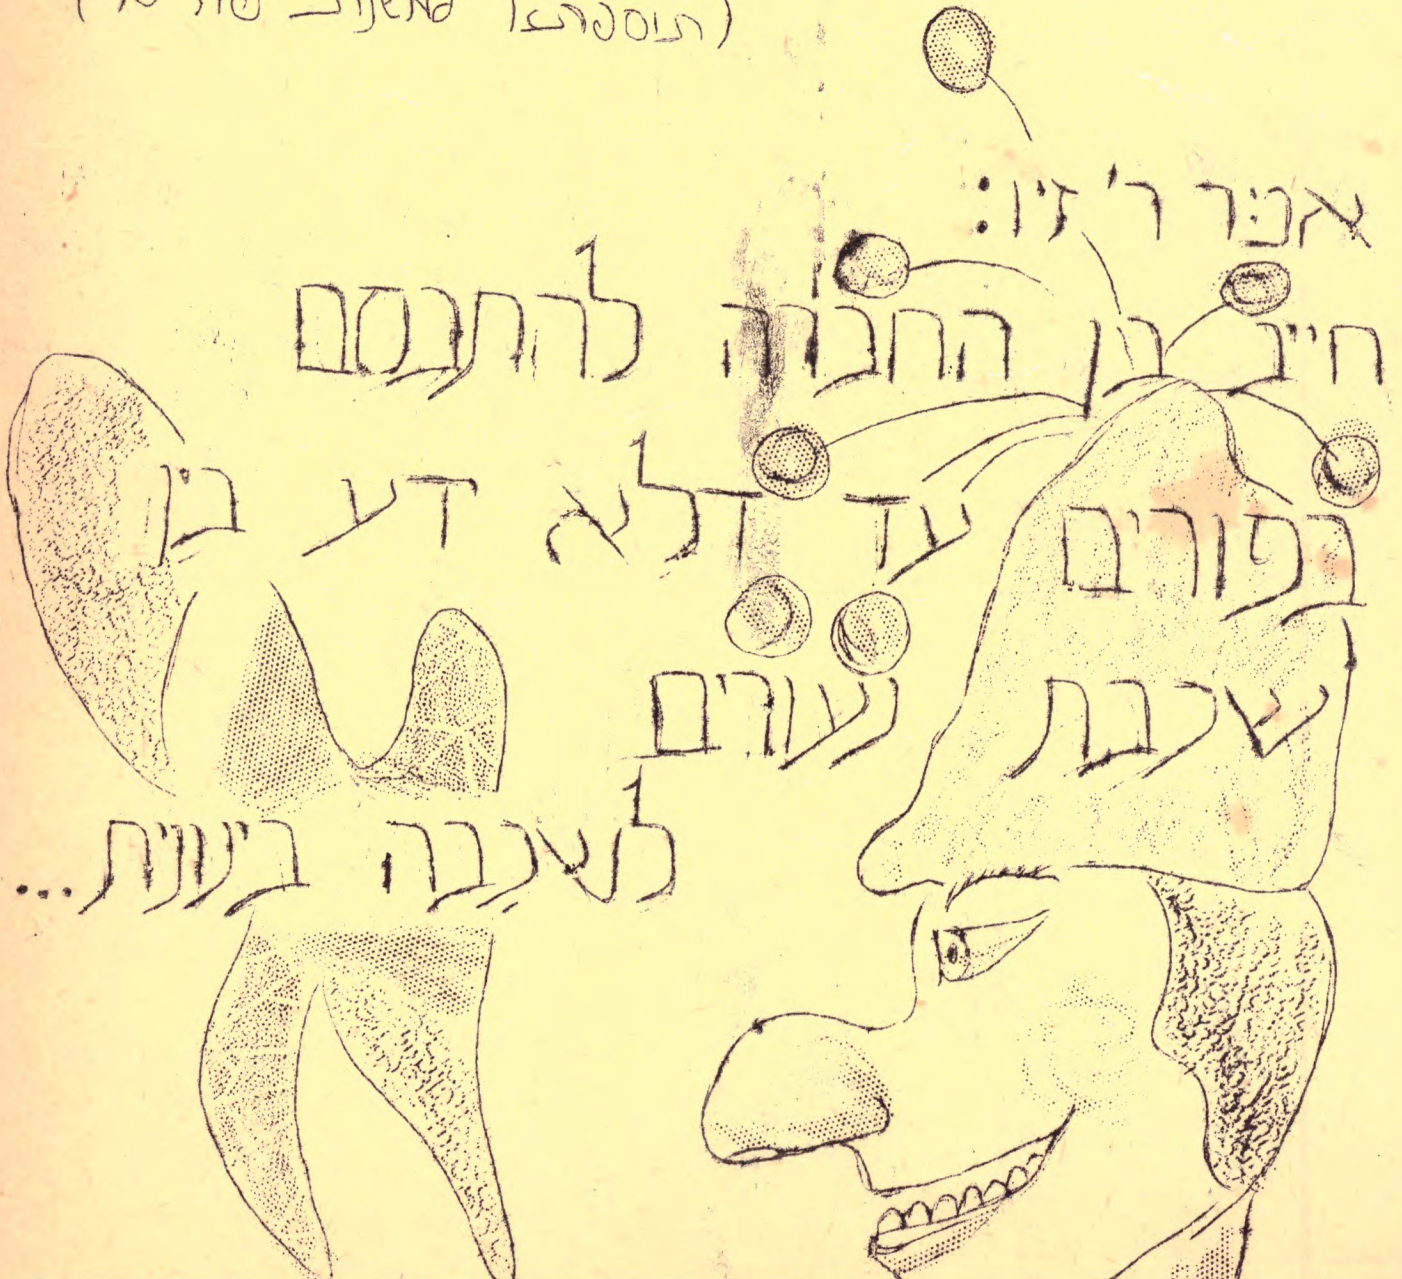 (תוספתא
אמר ר' זיו:
חייב בן החבורה להתבסם
בפורים עד דלא ידע בין
שכבת נעורים
לשכבה בינונית...